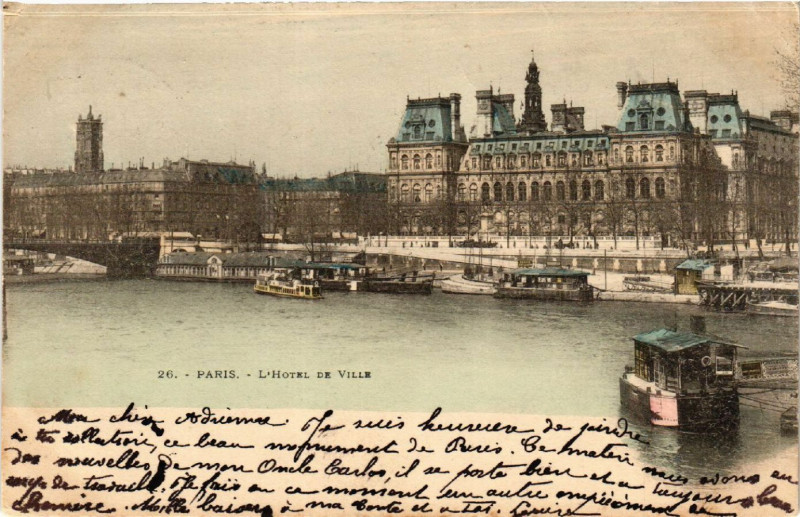 26. - PARIS. - L'HOTEL DE VILLE
Ma chère Adrienne. Je suis heureuse de joindre
à ta collection, ce beau monument de Paris. Ce matin, nous avons eu
des nouvelles de mon Oncle Carlos, il se porte bien et a toujours
de travail. Je fais en ce moment un autre empiècement
chemise. Mille baisers à ma Tante et à toi. Louise